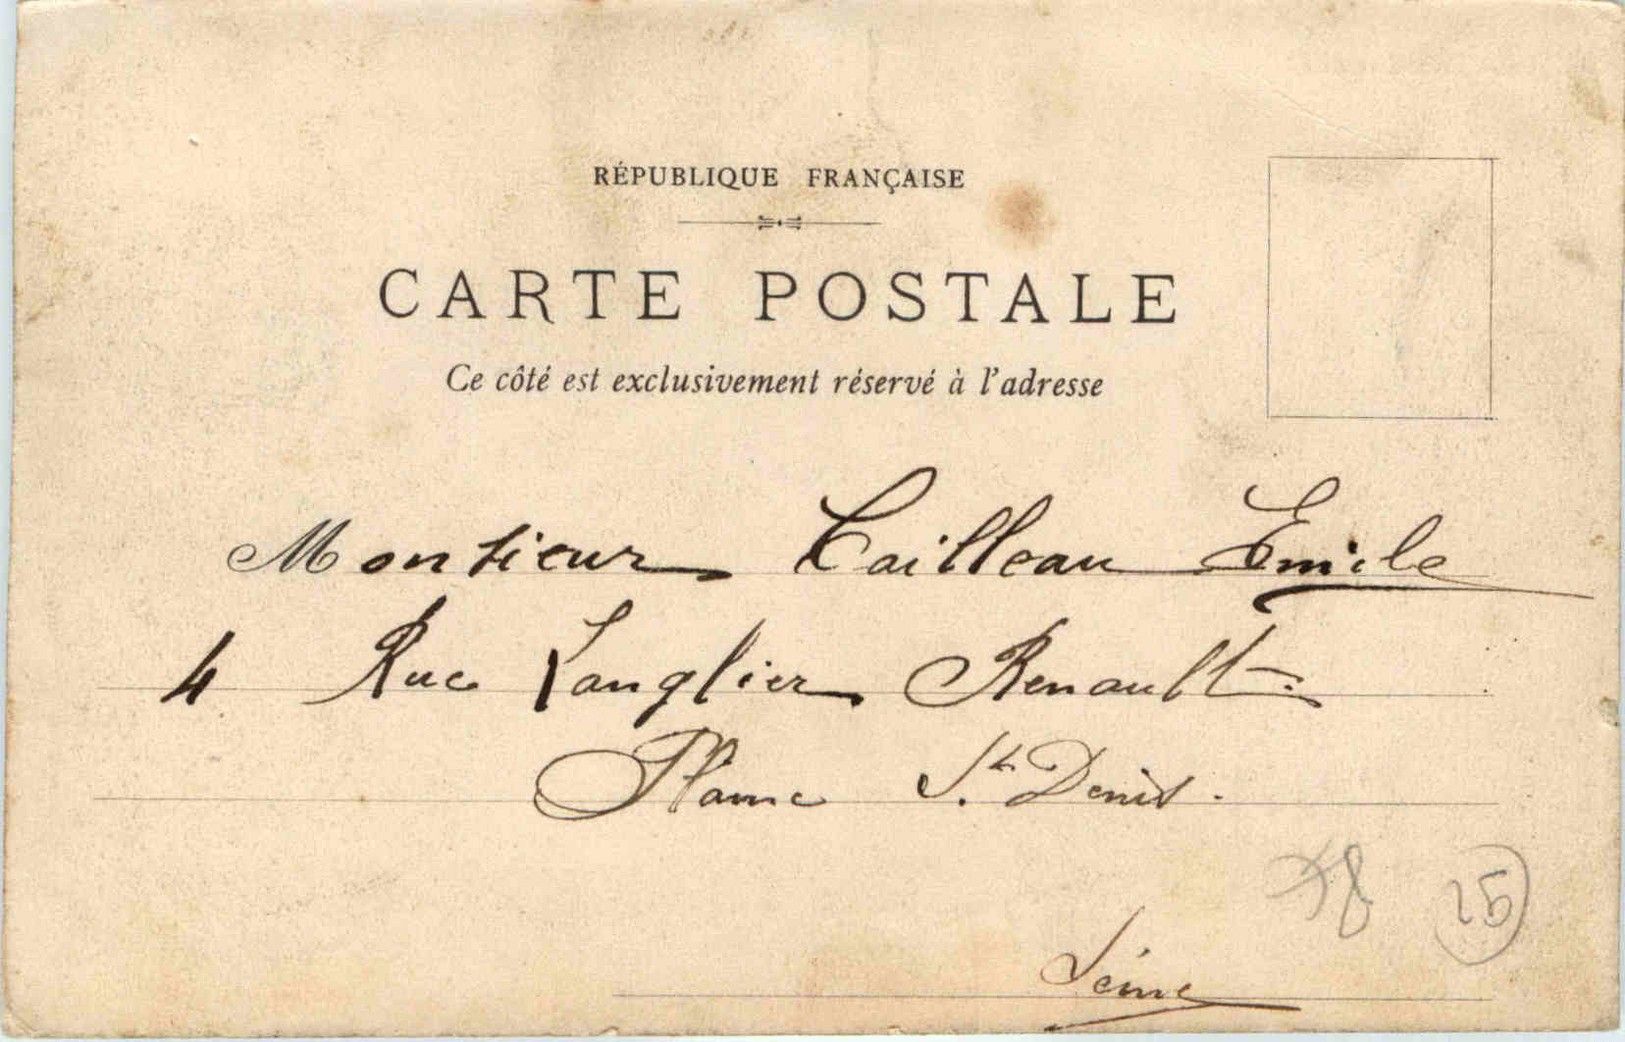 RÉPUBLIQUE FRANÇAISE
CARTE POSTALE
Ce côté est exclusivement réservé à l'adresse
Monsieur Cailleau Emile
4 Rue Langlier Renault
Plaine St Denis.
78 25
Seine